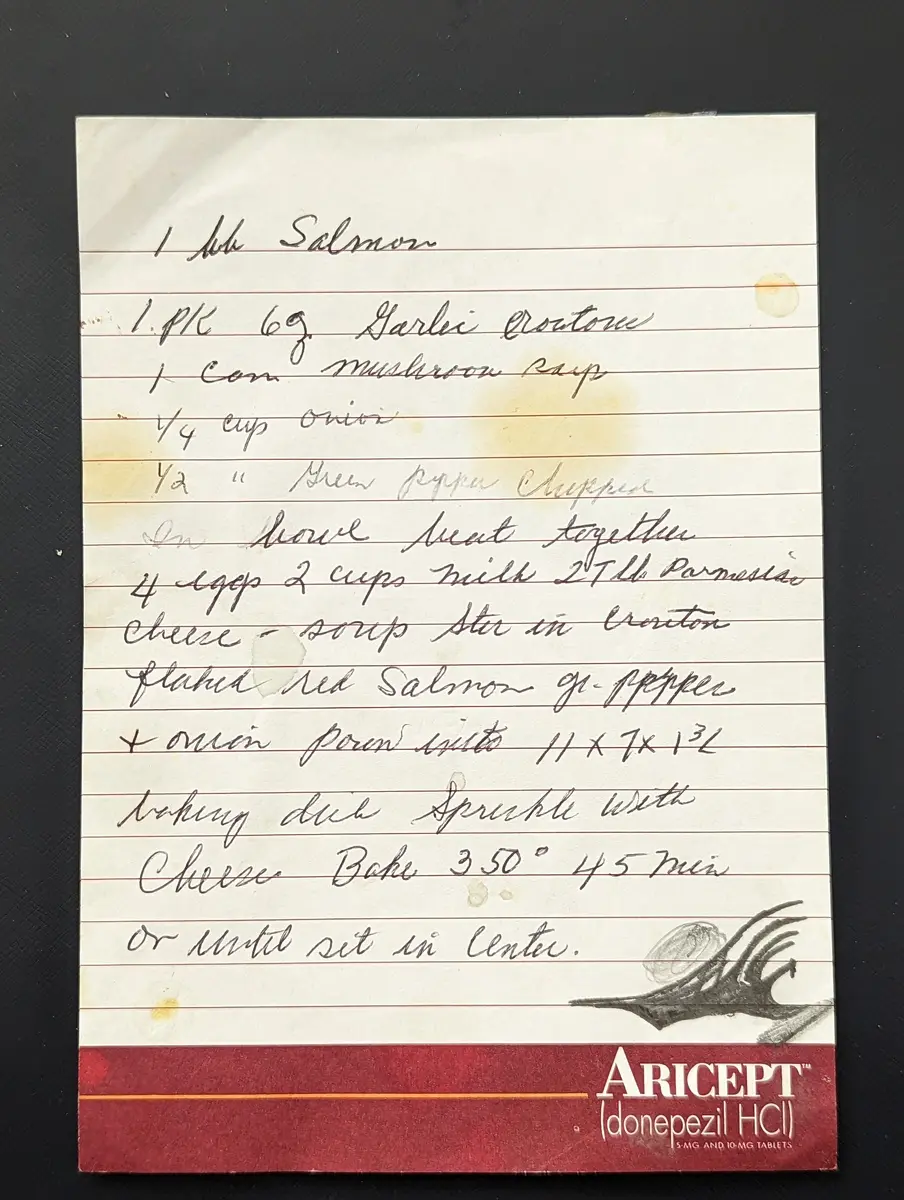 1 lb Salmon
1 PK 6 oz Garlic Croutons
1 Can mushroom soup
1/4 cup onion
1/2 " Green pepper Chopped
In bowl beat together
4 eggs 2 cups milk 2 Tlb Parmesian
cheese - soup Stir in Crouton
flaked red Salmon gr. pepper
+ onion Pour into 11 x 7 x 1 3/4
baking dish Sprinkle with
Cheese Bake 350° 45 min
or until set in Center.
ARICEPT™
(donepezil HCl)
5-MG AND 10-MG TABLETS